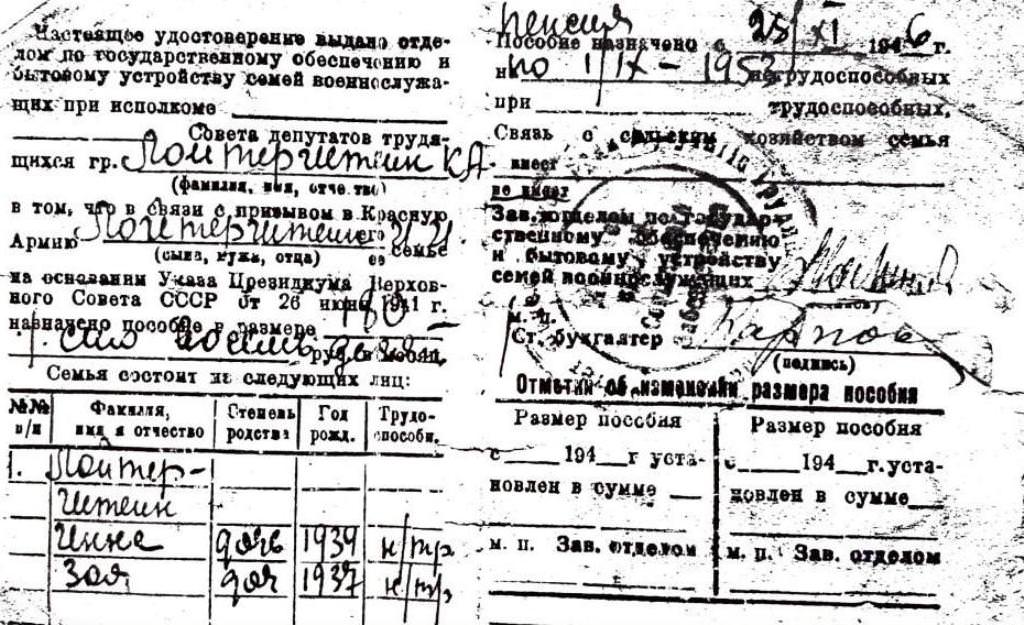 Настоящее удостоверение выдано отде-
лом по государственному обеспечению и
бытовому устройству семей военнослужа-
щих при исполкоме
Совета депутатов трудя-
щихся гр. Лойтерштейн КА
(фамилия, имя, отчество)
в том, что в связи с призывом в Красную
Армию Лойтерштейн его семье
(сына, мужа, отца) ее
на основании Указа Президиума Верхов-
ного Совета СССР от 26 июня 1941 г.
назначено пособие в размере 180
сто руб. в месяц.
Семья состоит из следующих лиц:
№№ п/п Фамилия, имя и отчество Степень родства Год рожд. Трудо-способн.
1. Лойтер-
штейн
Инна дочь 1939 н/тр
Зоя доч 1937 н/тр,
пенсия
Пособие назначено с 25/XI 1946 г.
на по 1/IX - 1953 нетрудоспособных
при трудоспособных.
Связь с сельским хозяйством семья
имеет
не имеет
Зав. отделом по государ-
ственному обеспечению
и бытовому устройству
семей военнослужащих
м. п.
Ст. бухгалтер Карпов
(подпись)
Отметки об изменении размера пособия
Размер пособия
с 194 г. уста-
новлен в сумме
м. п. Зав. отделом
Размер пособия
с 194 г. уста-
новлен в сумме
м. п. Зав. отделом